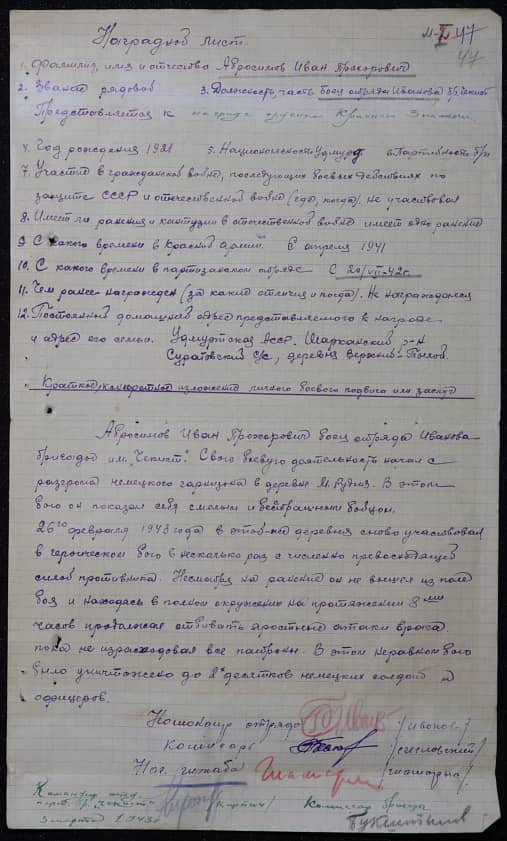 М-I-47
47
Наградной лист.
1. Фамилия, имя и отчество Абросимов Иван Прохорович
2. Звание рядовой 3. Должность, часть боец отряда Иванова бр. Чекист
Представляется к награде орденом Красного Знамени.
4. Год рождения 1921 5. Национальность Удмурд 6. Партийность б/п
7. Участие в гражданской войне, последующих боевых действиях по
защите СССР и отечественной войне (где, когда). Не участвовал
8. Имеет ли ранения и контузии в отечественной войне имеет одно ранение
9. С какого времени в Красной Армии С апреля 1941
10. С какого времени в партизанском отряде С 20/VII-42г.
11. Чем ранее награжден (за какие отличия и когда). Не награждался
12. Постоянный домашний адрес представляемого к награде
и адрес его семьи. Удмуртская АССР. Шарканский р-н
Сурановский с/с, деревня Верхний-
Краткое, конкретное изложение личного боевого подвига или заслуг
Абросимов Иван Прохорович боец отряда Иванова
бригады им. "Чекист". Свою боевую деятельность начал с
разгрома немецкого гарнизона в деревне М. В этом
бою он показал себя смелым и бесстрашным бойцом.
26го февраля 1943 года в этой-же деревне снова участвовал
в героическом бою в несколько раз с численно превосходящей
силой противника. Несмотря на ранение он не вышел из поле
боя и находясь в полном окружении на протяжении 8ми
часов продолжал отбивать яростные атаки врага
пока не израсходовал все патроны. В этом неравном бою
было уничтожено до 2х десятков немецких солдат и
офицеров.
Командир отряда /Иванов/
Комиссар
Нач. штаба
Командир
"Чекист" /Кирпич/ Комиссар бригады
3 марта 1943г.